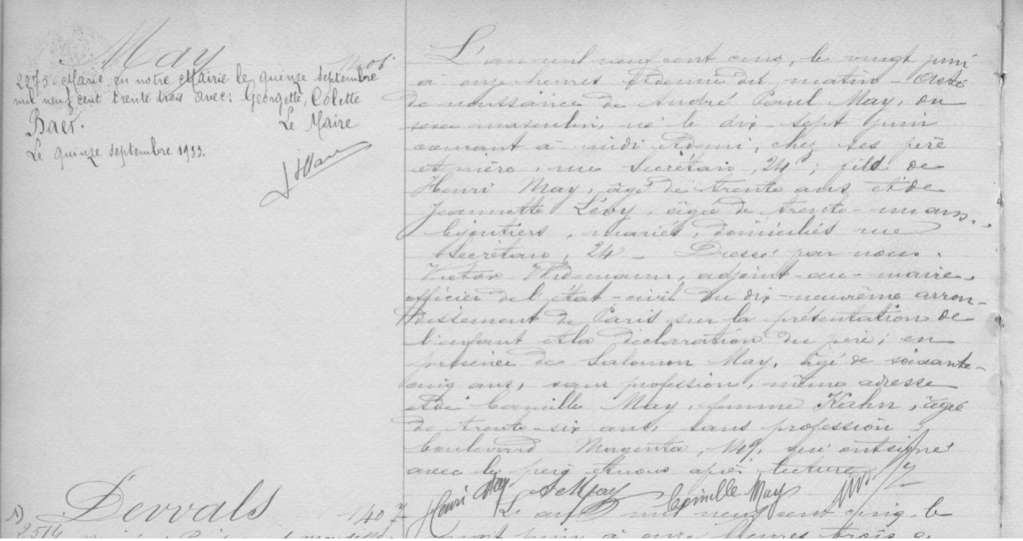 May
2275 Marié en notre Mairie le quinze Septembre
mil neuf cent trente trois avec: Georgette, Colette
Baer.
Le Maire
Le quinze septembre 1933.
L'an mil neuf cent cinq, le vingt juin
à onze heures et demie du matin Acte
de naissance de André Paul May, du
sexe masculin, né le dix-sept juin
courant à midi et demi, chez ses père
et mère, rue Secrétan, 24; fils de
Henri May, âgé de trente ans et de
Jeannette Lévy, âgée de trente-un ans,
bijoutiers, mariés, domiciliés rue
Secrétan, 24. Dressé par nous,
Victor Widemann, adjoint au maire,
officier de l'état-civil du dix-neuvième arron-
dissement de Paris sur la présentation de
l'enfant et la déclaration du père; en
présence de Salomon May, âgé de soixante-
cinq ans, sans profession, même adresse
et de Camille May, femme Kahn, âgée
de trente-six ans, sans profession,
boulevard Magenta, 149, qui ont signé
avec le père et nous après lecture
Henri May S May Camille May
Dervals
1407
L'an mil neuf cent cinq, le
2514
vingt juin à onze heures trois